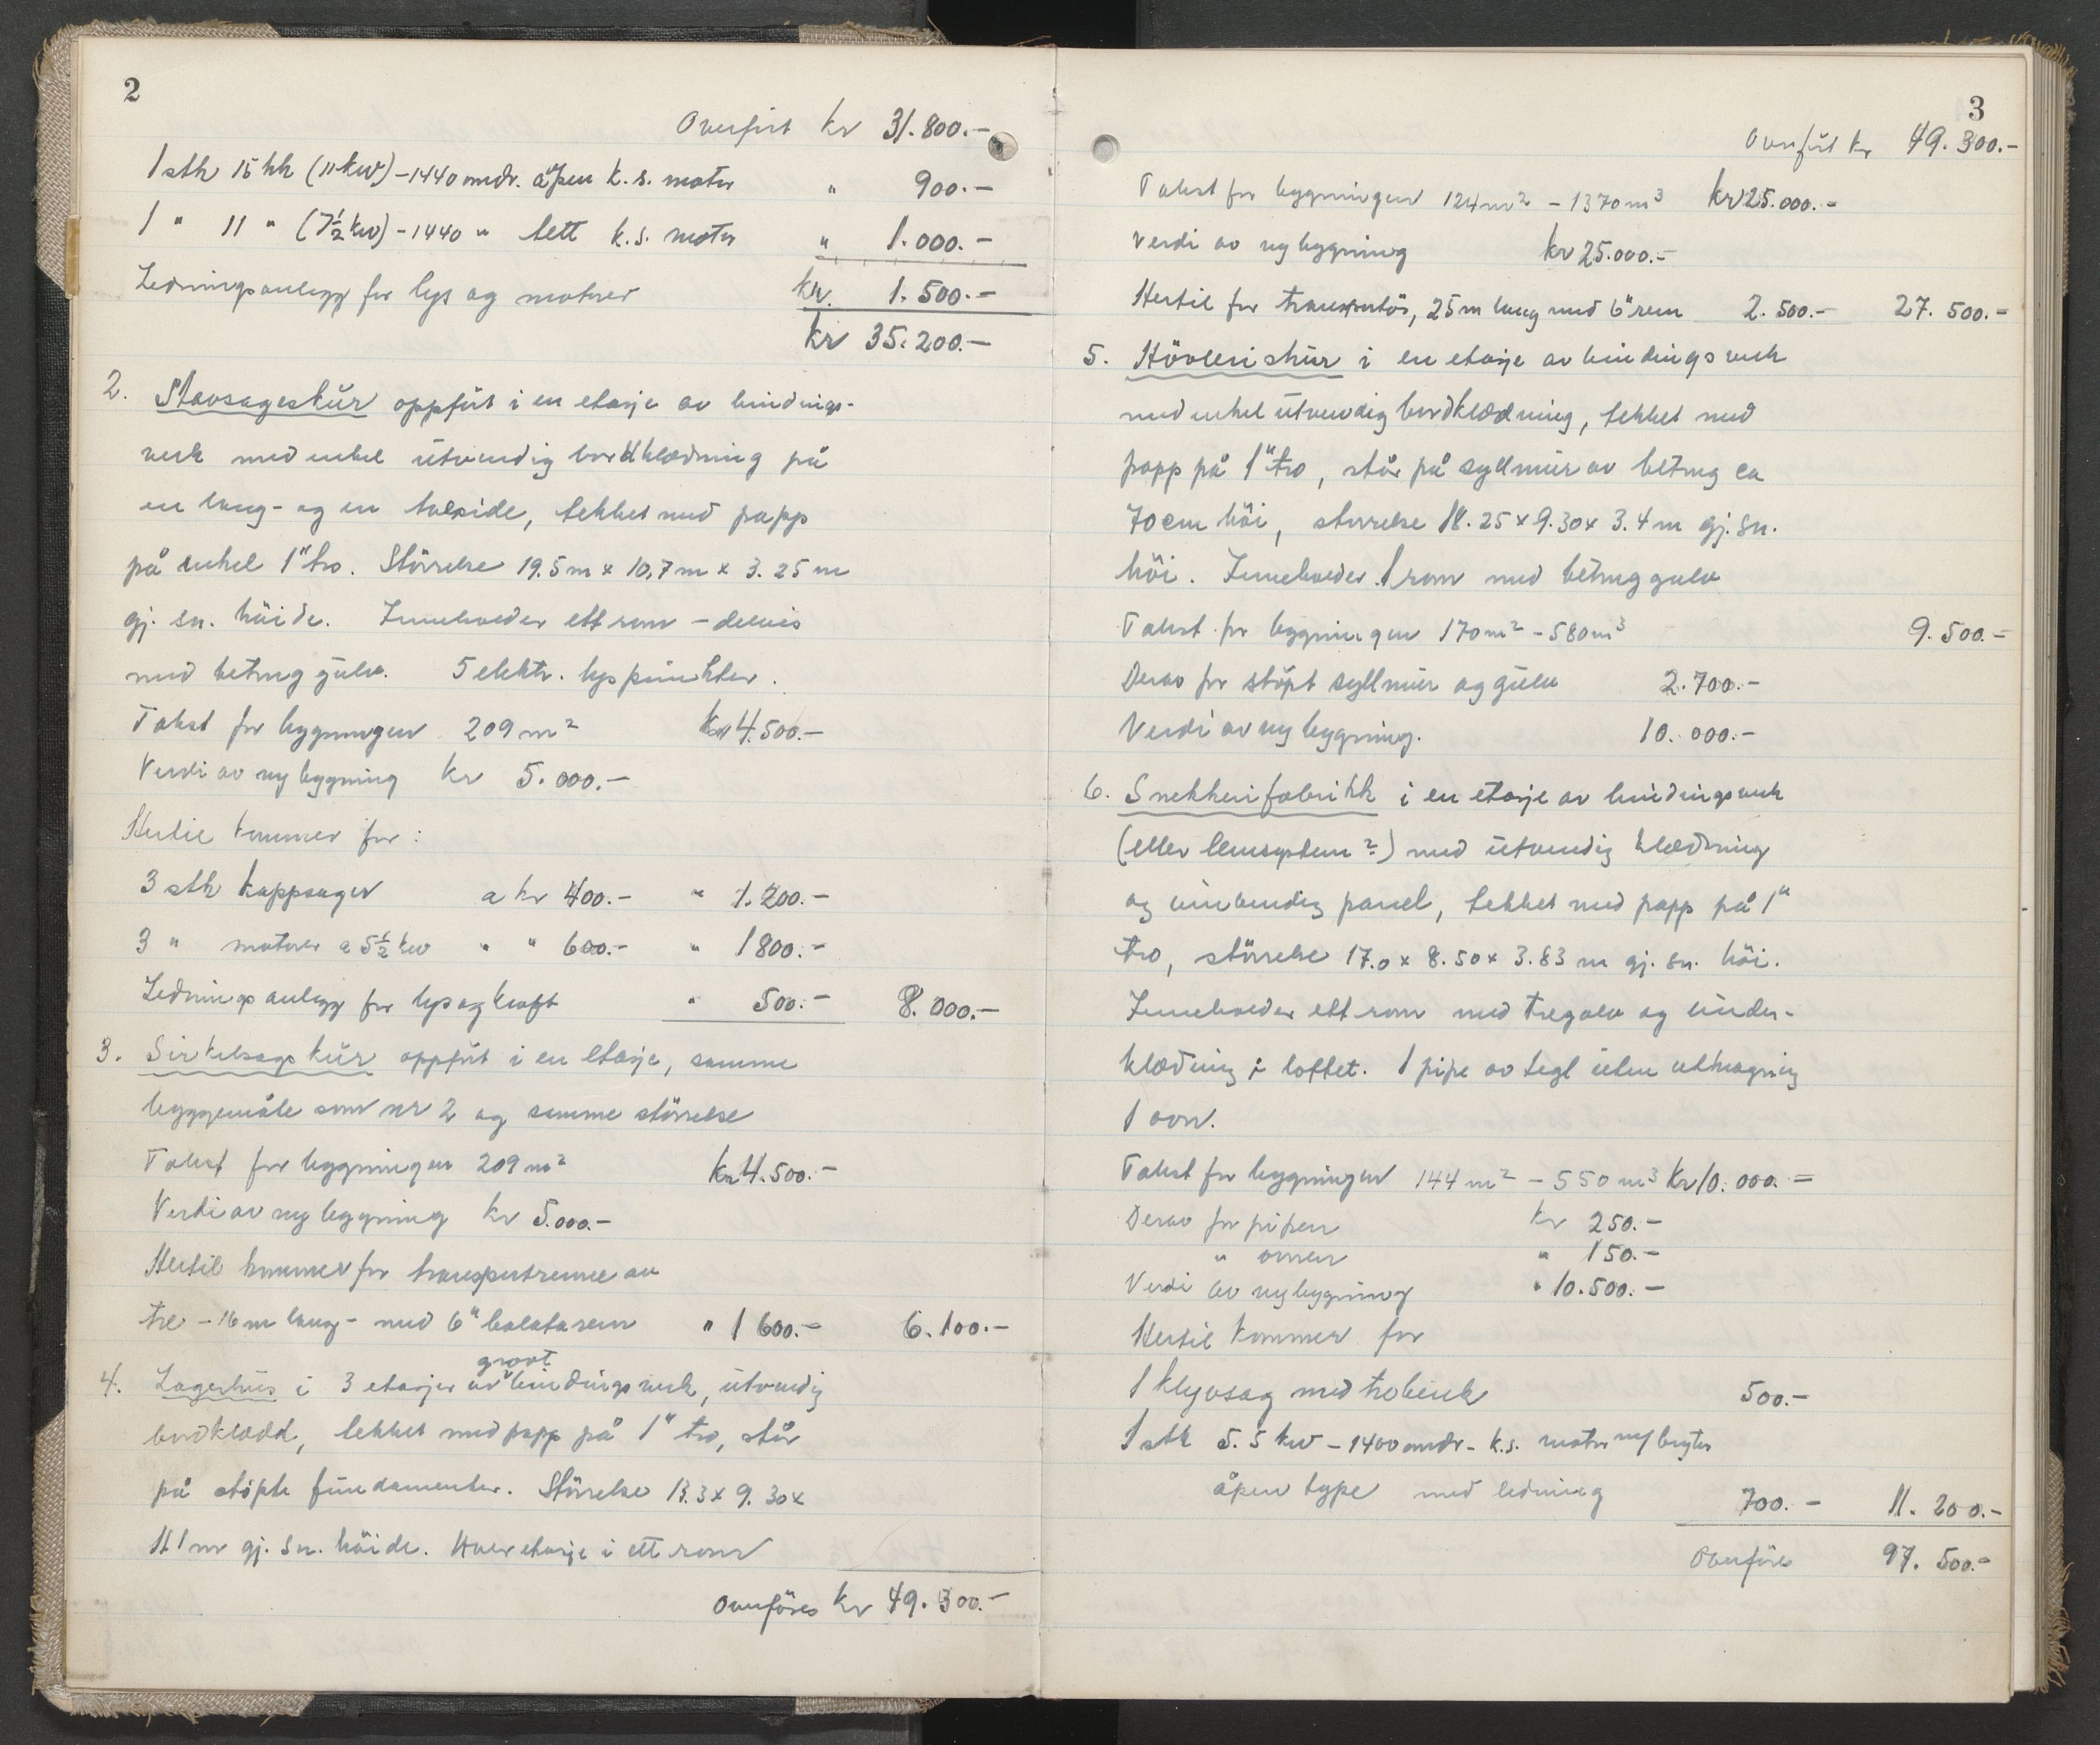 2
Overført kr 31.800.-
1 stk 15 hk (11 kw) - 1440 omdr. åpen k.s. motor " 900.-
1 " 11 " (7½ kw) - 1440 " tett k.s. motor " 1.000.-
Ledningsanlegg for lys og motorer kr. 1.500.-
kr 35.200.-
2. Stavsageskur oppført i en etasje av bindings-
verk med enkel utvendig bordklædning på
en lang- og en tverside, tekket med papp
på enkel 1" tro. Størrelse 19.5 m x 10,7 m x 3.25 m
gj. sn. høide. Inneholder ett rom - delvis
med betong gulv. 5 elektr. lyspunkter.
Takst for bygningen 209 m² kr 4.500.-
Verdi av ny bygning kr 5.000.-
Hertil kommer for:
3 stk kappsager a kr 400.- " 1.200.-
3 " motorer a 5½ kw " " 600.- " 1800.-
Ledningsanlegg for lys og kraft " 500.- 8.000.-
3. Sirkelsagskur oppført i en etasje, samme
byggemåte som nr 2 og samme størrelse
Takst for bygningen 209 m² kr 4.500.-
Verdi av ny bygning kr 5.000.-
Hertil kommer for transportrenne av
tre - 16 m lang - med 6" balatarem " 1600.- 6.100.-
4. Lagerhus i 3 etasjer av grovt bindingsverk, utvendig
bordklædd, tekket med papp på 1" tro, står
på støpte fundamenter. Størrelse 13.3 x 9.30 x
11.1 m gj. sn. høide. Hver etasje i ett rom
Overføres kr 49.300.-
3
Overført kr 49.300.-
Takst for bygningen 124 m² - 1370 m³ kr 25.000.-
Verdi av ny bygning kr 25.000.-
Hertil for transportör, 25 m lang med 6" rem 2.500.- 27.500.-
5. Høvleriskur i en etasje av bindingsverk
med enkel utvendig bordklædning, tekket med
papp på 1" tro, står på syllmur av betong ca
70 cm høi, størrelse 18.25 x 9.30 x 3.4 m gj. sn.
høi. Inneholder 1 rom med betonggulv
Takst for bygningen 170 m² - 580 m³ 9.500.-
Derav for støpt syllmur og gulv 2.700.-
Verdi av ny bygning. 10.000.-
6. Snekkerifabrikk i en etasje av bindingsverk
(eller lemsystem?) med utvendig klædning
og innvendig panel, tekket med papp på 1"
tro, størrelse 17.0 x 8.50 x 3.83 m gj. sn. høi.
Inneholder ett rom med tregolv og under-
klædning i loftet. 1 pipe av tegl uten utkragning
1 ovn.
Takst for bygningen 144 m² - 550 m³ kr 10.000.-
Derav for pipen kr 250.-
" ovnen " 150.-
Verdi av ny bygning " 10.500.-
Hertil kommer for
1 klyvsag med trebenk 500.-
1 stk 5.5 kw - 1400 omdr - k.s. motor m/ bryter
åpen type med ledning 700.- 11.200.-
Overføres 97.500.-